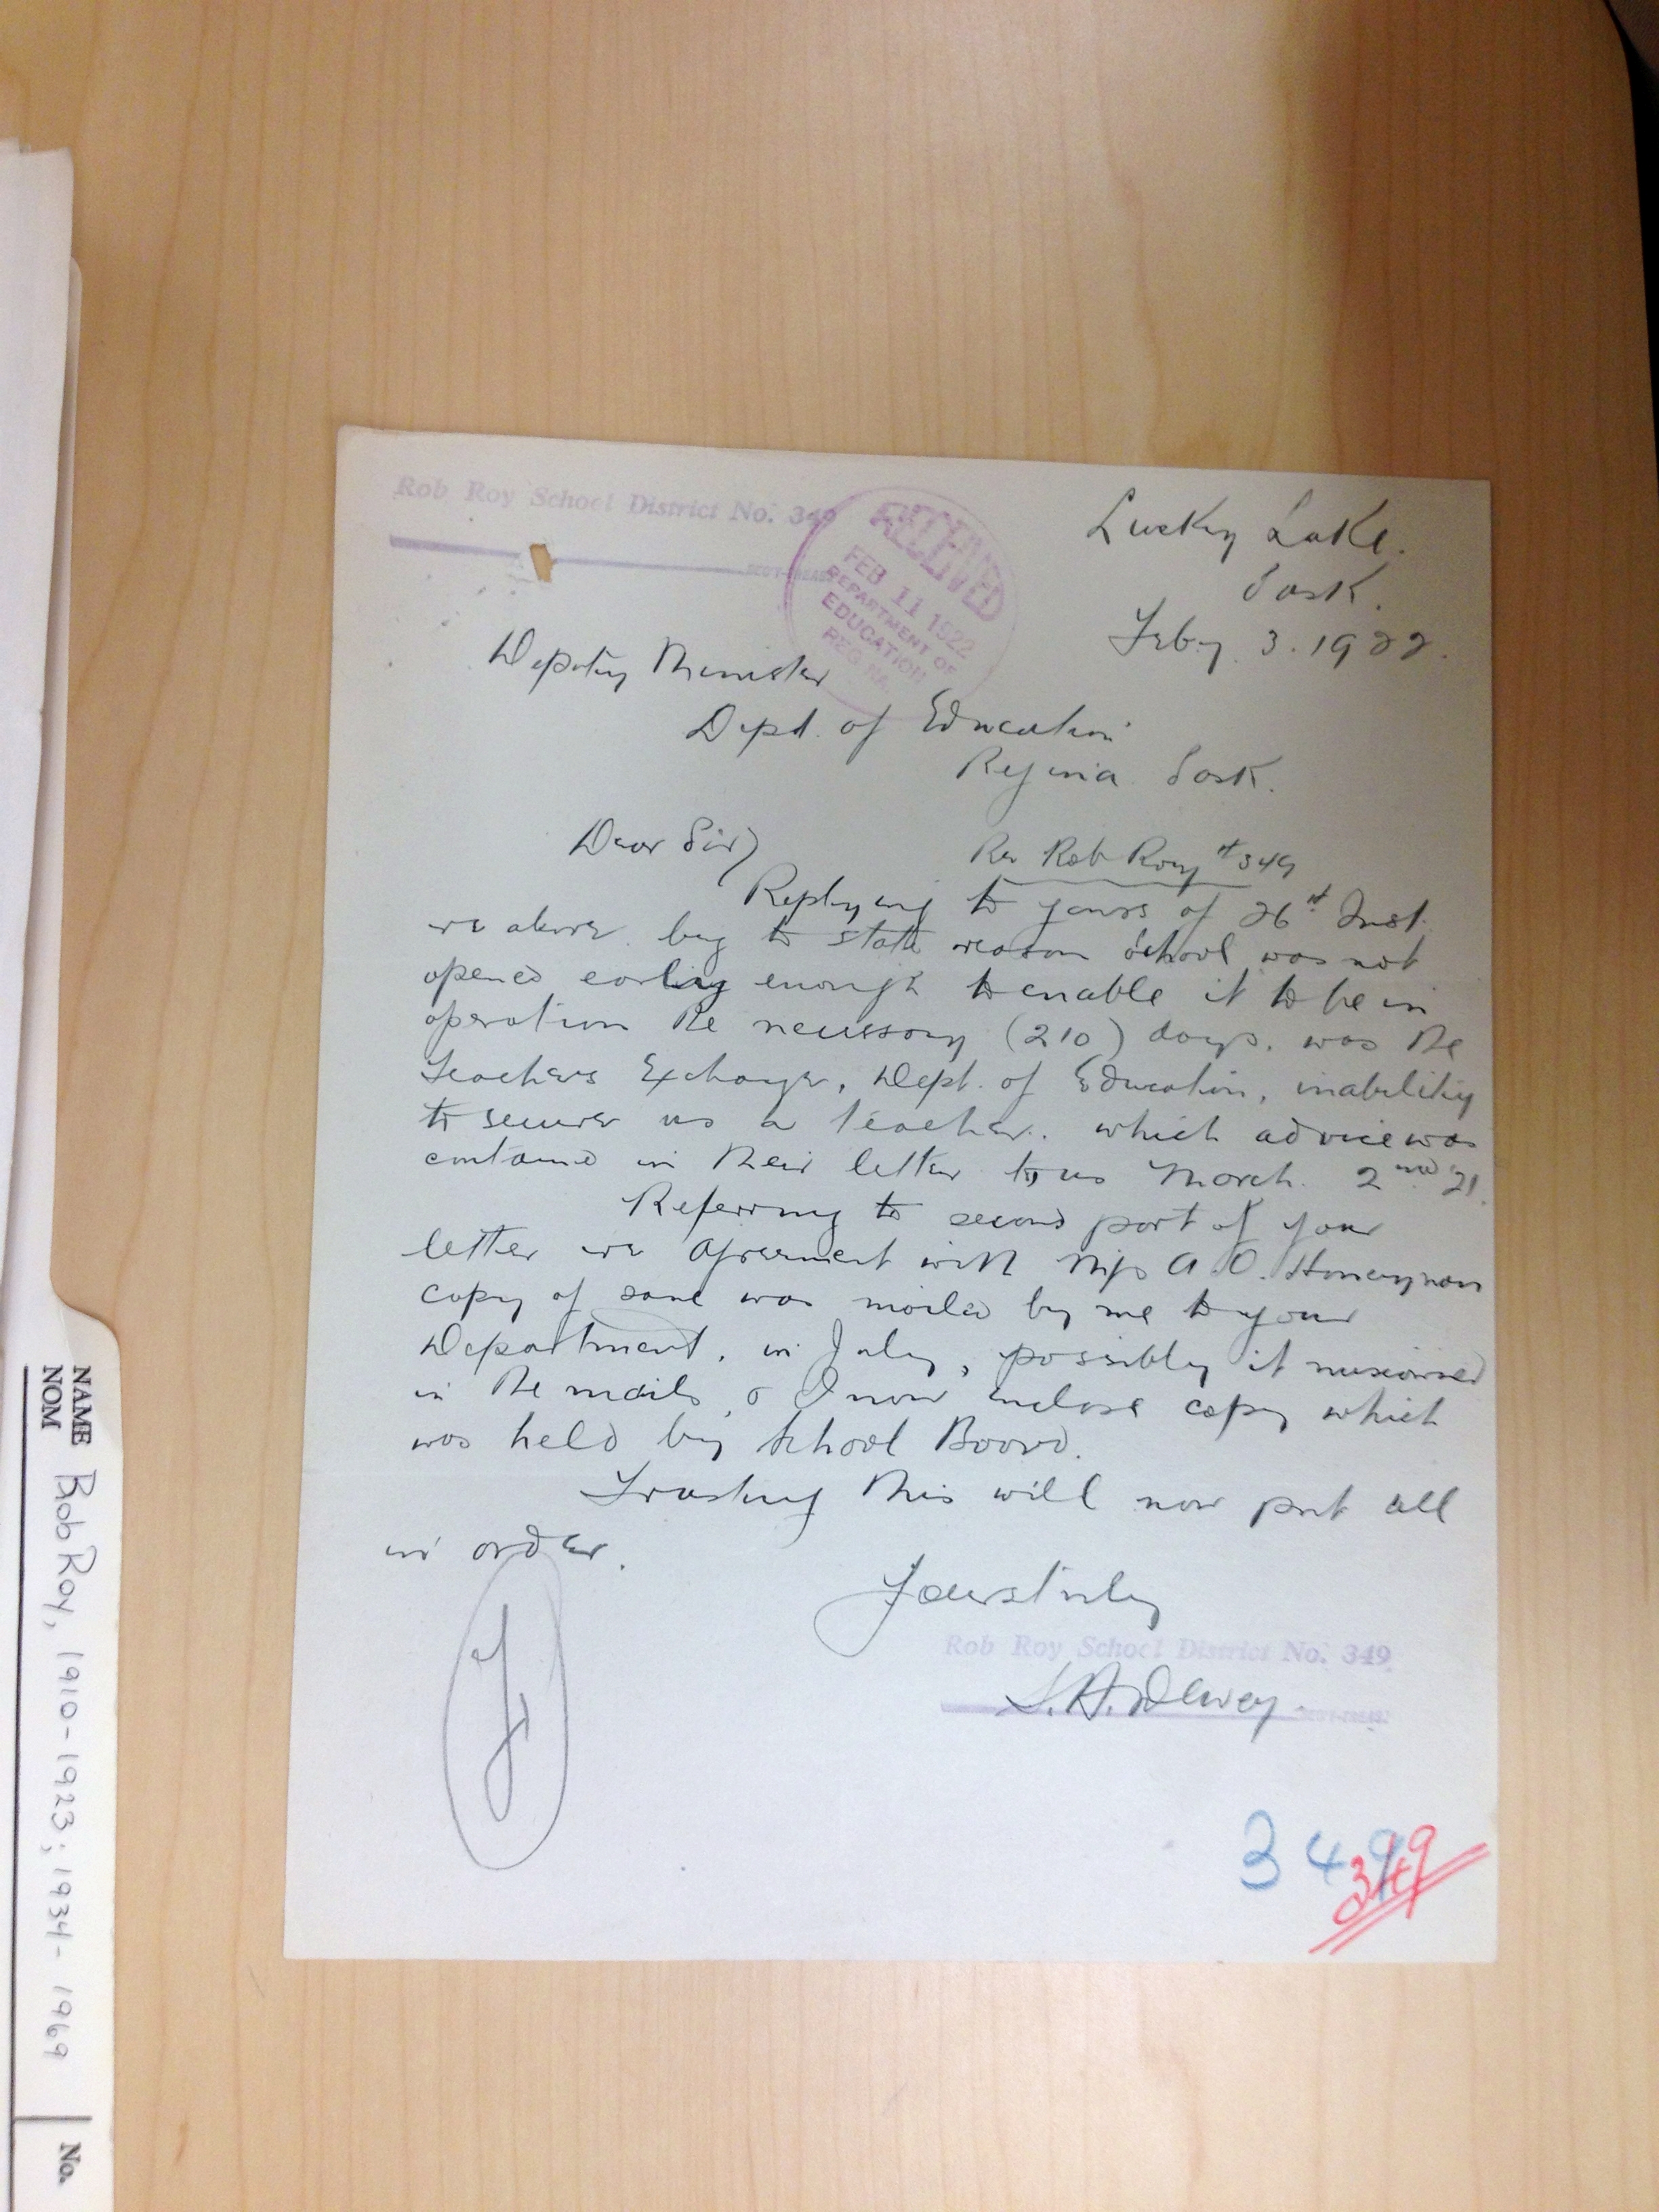 Rob Roy School District No. 349
SECY-TREAS.
RECEIVED
FEB 11 1922
DEPARTMENT OF
EDUCATION
REGINA
Lucky Lake.
Sask.
Feby. 3. 1922.
Deputy Minister
Dept. of Education
Regina Sask.
Dear Sir)
Re Rob Roy #349
Replying to yours of 26st Inst.
re above. beg to state reason school was not
opened early enough to enable it to be in
operation the necessary (210) days. was the
Teachers Exchange, Dept. of Education, inability
to secure us a teacher. which advice was
contained in their letter to us March. 2nd 21.
Referring to second part of your
letter re Agreement with Miss A.O. Honeyman
copy of same was mailed by me to your
Department, in July, possibly it miscarried
in the mails, & I now enclose copy which
was held by School Board.
Trusting this will now put all
in order.
Yours truly
Rob Roy School District No. 349
S.A. Dewey.
SECY-TREAS.
349
349
NAME Rob Roy, 1910-1923; 1934-1969 No.
NOM